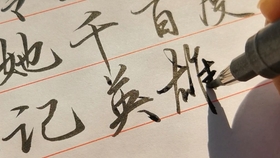 她千百度
记英雄